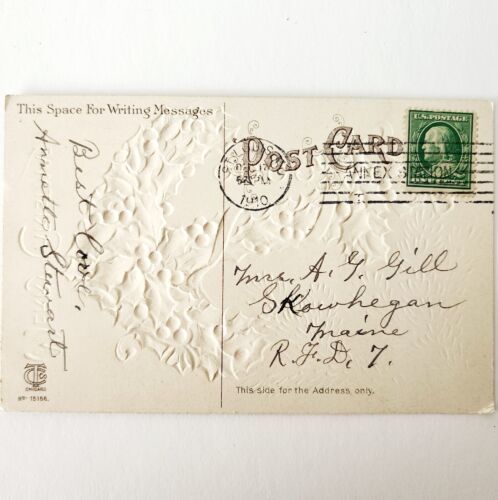 This Space For Writing Messages
Best Love,
Annette Stewart
POST CARD
U.S. POSTAGE
1910
ANNEX
Mrs. A. G. Gill
Skowhegan
Maine
R.F.D. 7.
This side for the Address only.
CHICAGO
Nº 15156.